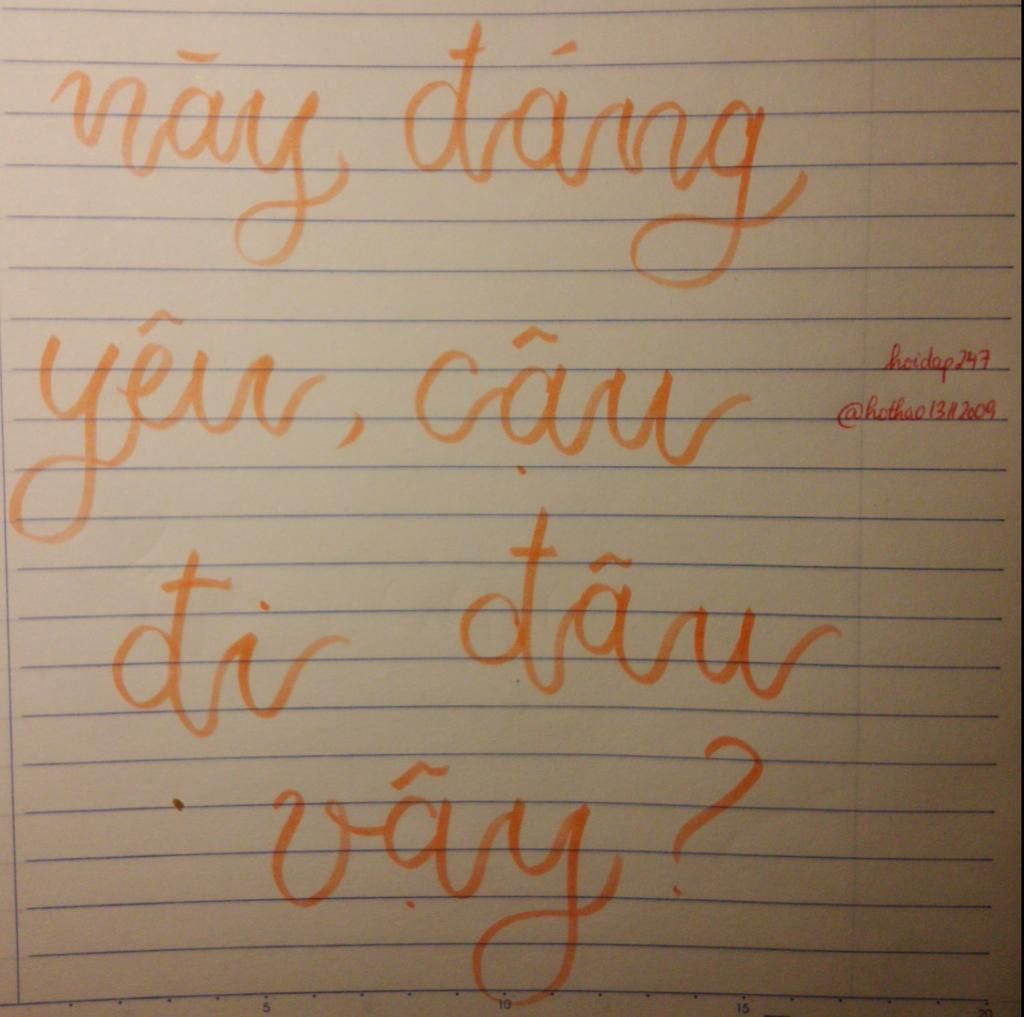 này đáng
yêu, cậu
hoidap247
@hothao13112009
đi đâu
vậy?
5 10 15 20